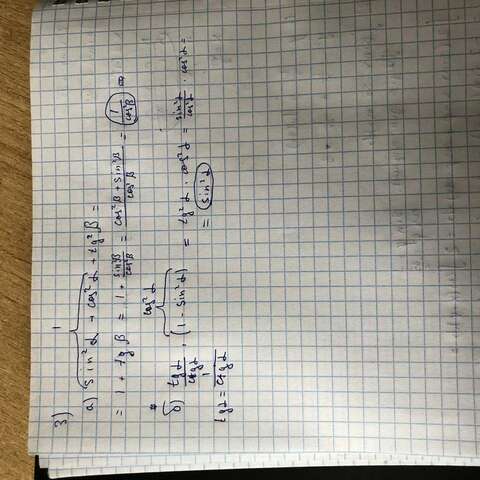 3)
1
а) sin²α + cos²α + tg²β =
= 1 + tgβ = 1 + sin²β/cos²β = cos²β + sin²β/cos²β = 1/cos²β =
cos²α
б) tgα/ctgα · (1 - sin²α) = tg²α · cos²α = sin²α/cos²α · cos²α =
= sin²α
tgα = 1/ctgα